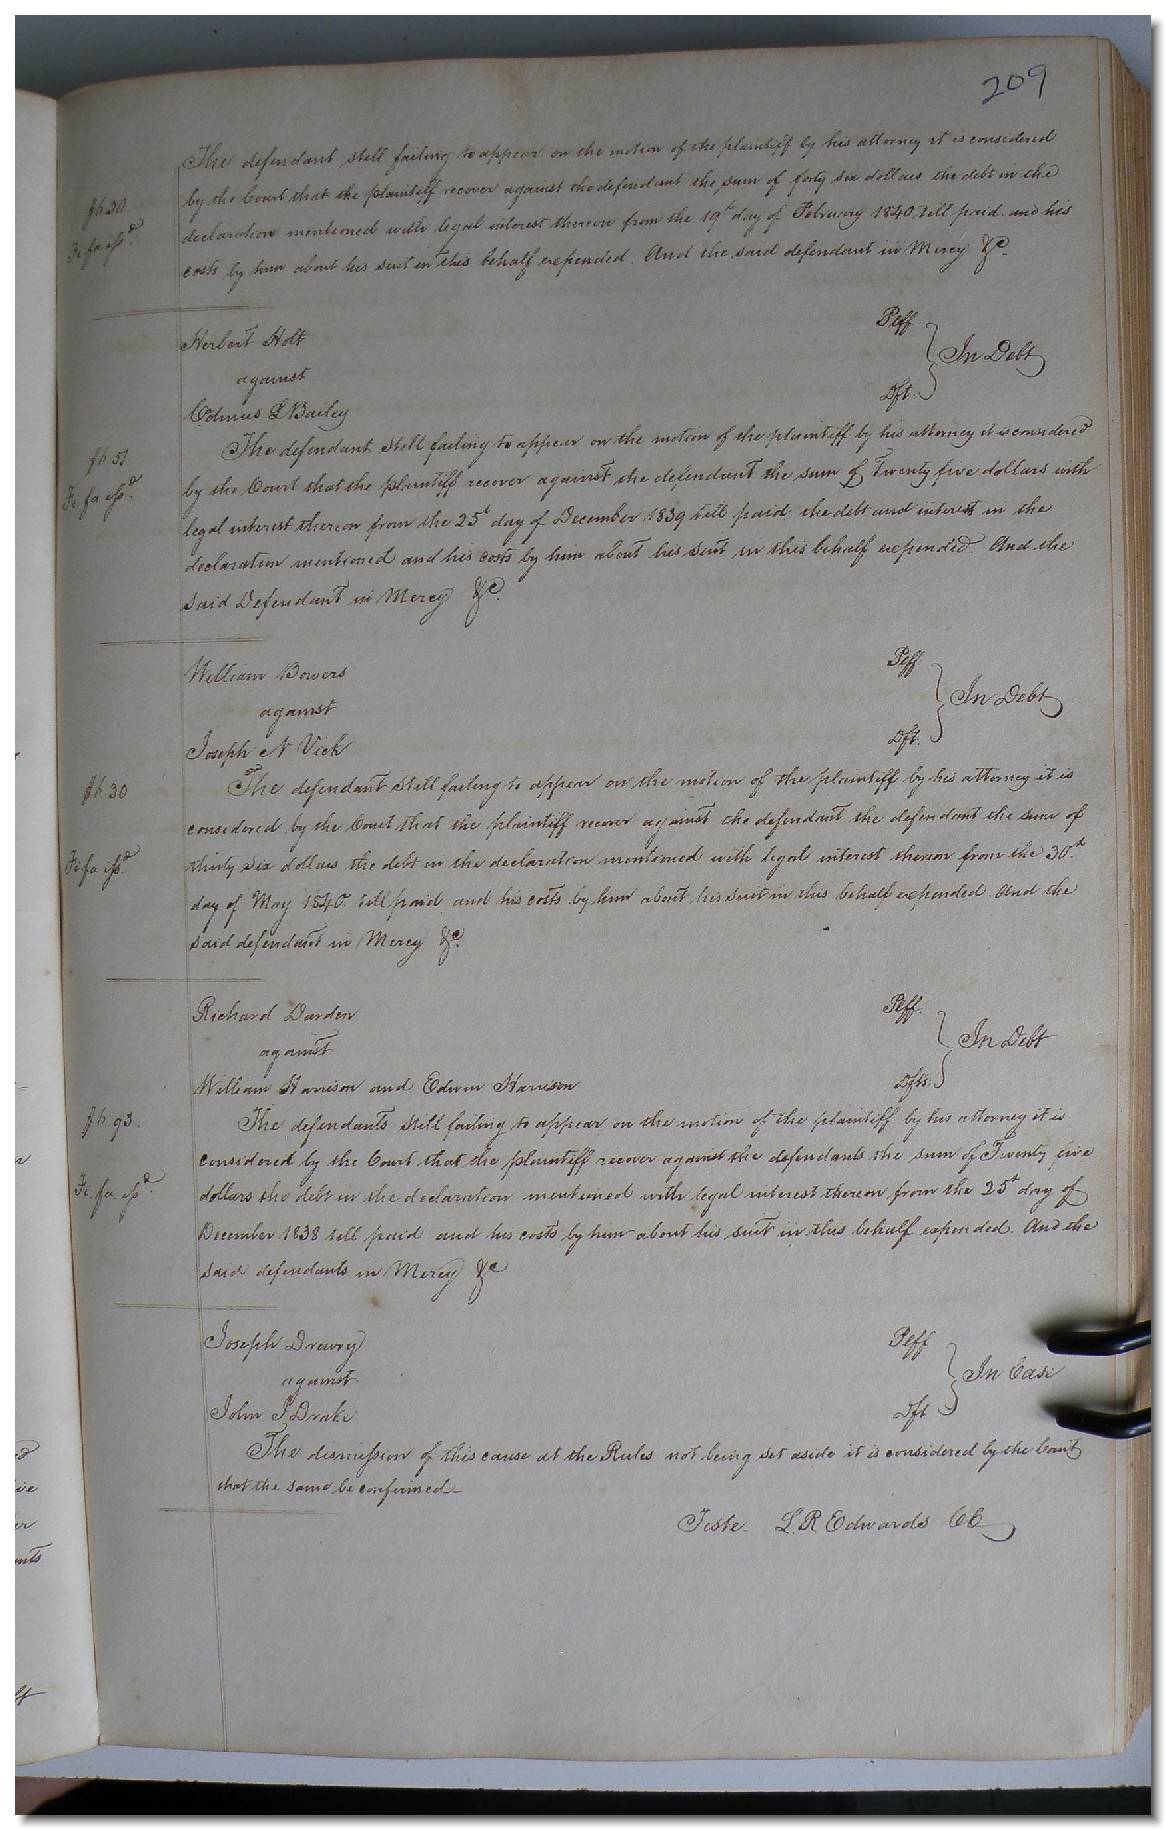 209
The defendant still failing to appear on the motion of the plaintiff by his attorney it is considered
by the Court that the plaintiff recover against the defendant the sum of forty six dollars the debt in the
declaration mentioned with legal interest thereon from the 19th day of February 1840 till paid and his
costs by him about his suit in this behalf expended. And the said defendant in Mercy &c.
Fi fa issd.
Herbert Holt Plff
against In Debt
L Bailey Dft.
The defendant still failing to appear on the motion of the plaintiff by his attorney it is considered
by the Court that the plaintiff recover against the defendant the sum of Twenty five dollars with
legal interest thereon from the 25t day of December 1839 till paid the debt and interest in the
declaration mentioned and his costs by him about his suit in this behalf expended. And the
said Defendant in Mercy &c.
Fi fa issd.
William Bowers Plff
against In Debt
Joseph N Vick Dft.
The defendant still failing to appear on the motion of the plaintiff by his attorney it is
considered by the Court that the plaintiff recover against the defendant the defendant the sum of
thirty six dollars the debt in the declaration mentioned with legal interest thereon from the 30th
day of May 1840. till paid and his costs by him about his suit in this behalf expended. And the
said defendant in Mercy &c.
30
Fi fa issd.
Richard Darden Plff.
against In Debt
William Harrison and Edwin Harrison Dfts.
The defendants still failing to appear on the motion of the plaintiff by his attorney it is
considered by the Court that the plaintiff recover against the defendants the sum of Twenty five
dollars the debt in the declaration mentioned with legal interest thereon from the 25t day of
December 1838 till paid and his costs by him about his suit in this behalf expended. And the
said defendants in Mercy &c
93.
Fi. fa. issd.
Joseph Drewry Plff
against In Case
John J Drake Dft
The dismission of this cause at the Rules not being set aside it is considered by the Court
that the same be confirmed.
Teste. L. R Edwards CC